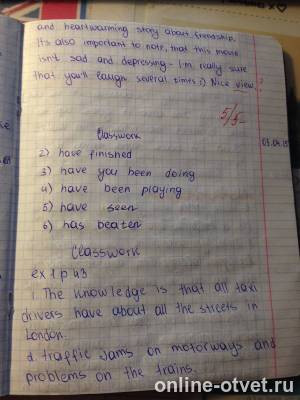 and heartwarming story about friendship.
It's also important to note, that this movie
isn't sad and depressing - I'm really sure
that you'll laugh several times :) Nice view.
5/5
Classwork
03.04.15
2) have finished
3) have you been doing
4) have been playing
5) have seen
6) has beaten
Classwork
ex 1 p 43
1. The knowledge is that all taxi
drivers have about all the streets in
London.
d. traffic jams on motorways and
problems on the trains.
online-otvet.ru